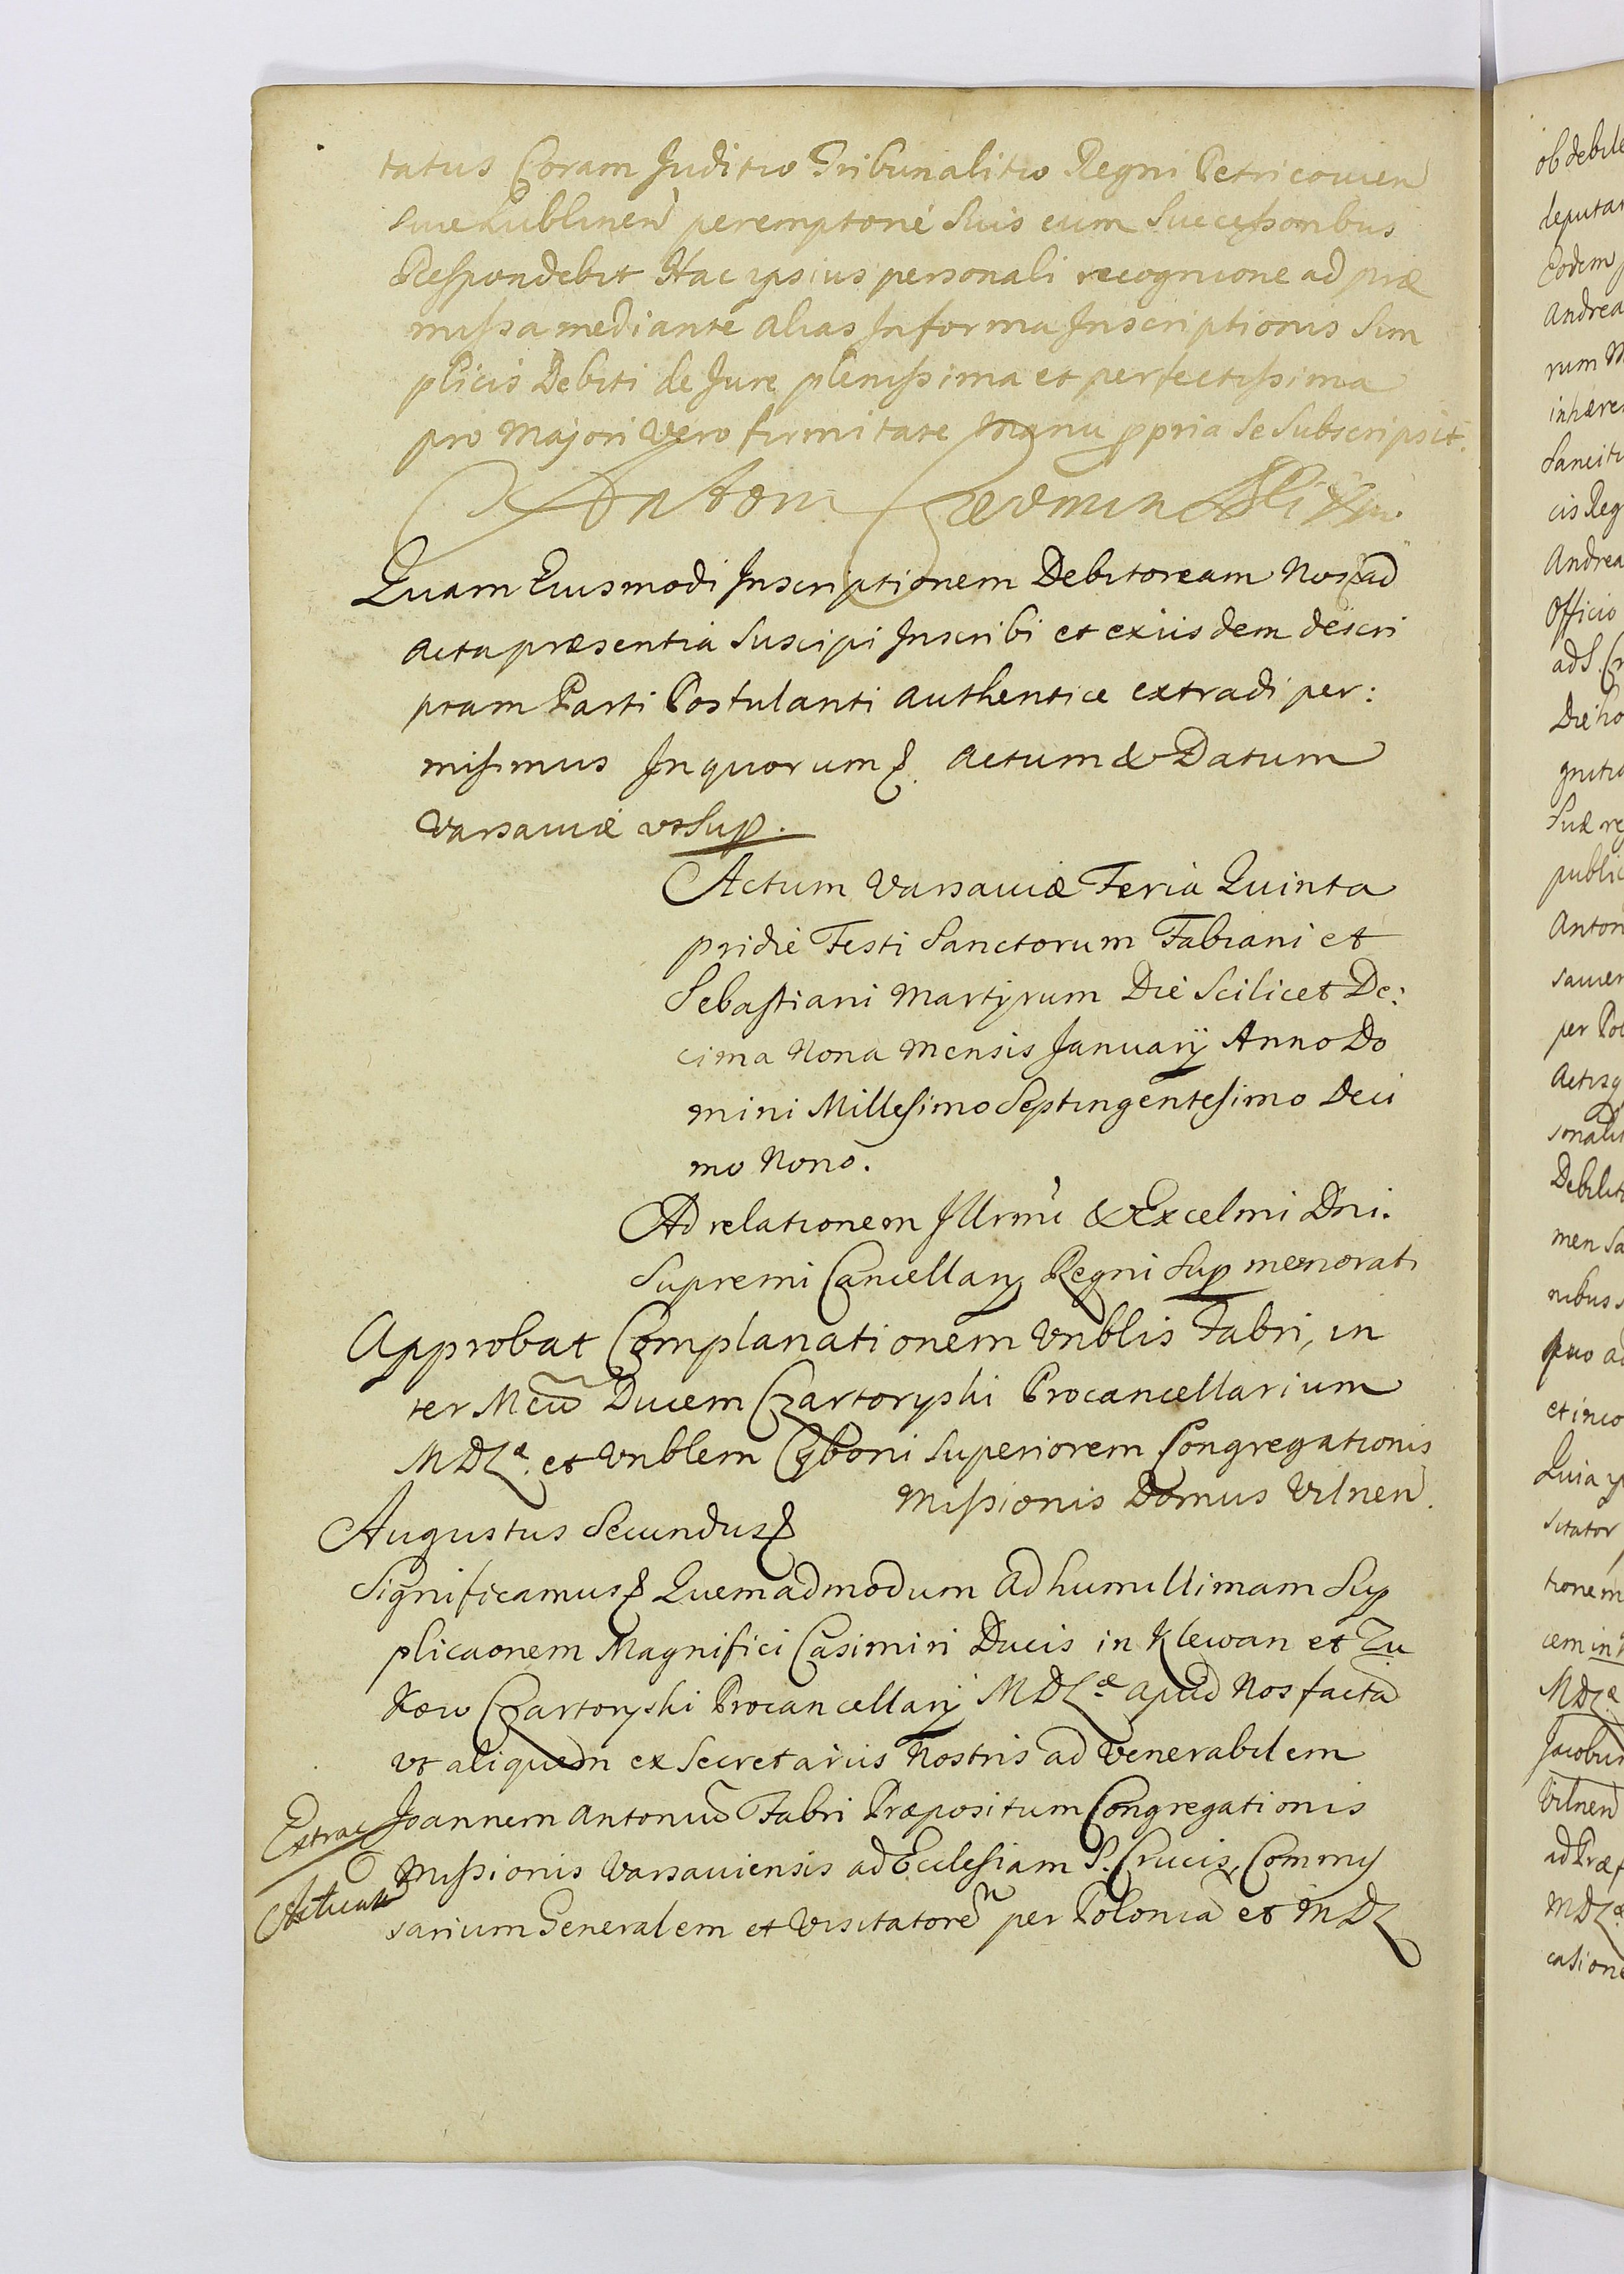 tatus Coram Juditio Tribunalitio Regni Petricouien
siue Lublinen peremptorié suis cum Successoribus
Respondebit Hac ipsius personali recognicione ad præ
missa mediante alias Informa Inscriptionis Sim
plicis Debiti de Jure plenissima et perfectissima
pro Majori Vero firmitate Manu ppria se subscripsit.
Antoni
Quam Eiusmodi Inscriptionem Debitoream Nos ad
acta præsentia suscipi Inscribi et exiisdem descri
ptam Parti Postulanti authentice extradi per:
misimus Inquorum. actum & Datum
Varsauiæ vt Sup.
Actum Varsauiæ Feria Quinta
pridie Festi Sanctorum Fabiani et
Sebastiani Martyrum Die Scilicet De:
cima Nona Mensis Januarij Anno Do
mini Millesimo Septingentesimo Deci
mo Nono.
Ad relationem Illrmi & Excelmi Dni.
Supremi Cancellarij Regni Sup memorati
Approbat Complanationem Vnblis Fabri, in
ter Mcu Ducem Czartoryski Procancellarium
MDLæ. et Vnblem Cyboni Superiorem Congregationis
Missionis Domus Vilnen.
Augustus Secundus
Significamus Quemadmodum ad humillimam Sup
plicaonem Magnifici Casimiri Ducis in Klewan et Zu
kow Czartoryski Procancellarij MDLæ apud Nos facta
vt aliquem ex Secretariis Nostris ad Venerabilem
Joannem Antoniu Fabri Præpositum Congregationis
Missionis Varsauiensis ad Ecclesiam S. Crucis, Commis
sarium Generalem et Visitatore per Polonia et MDL
Extrac